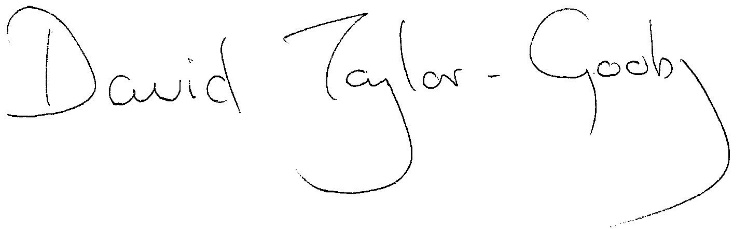 David Taylor-Gooby